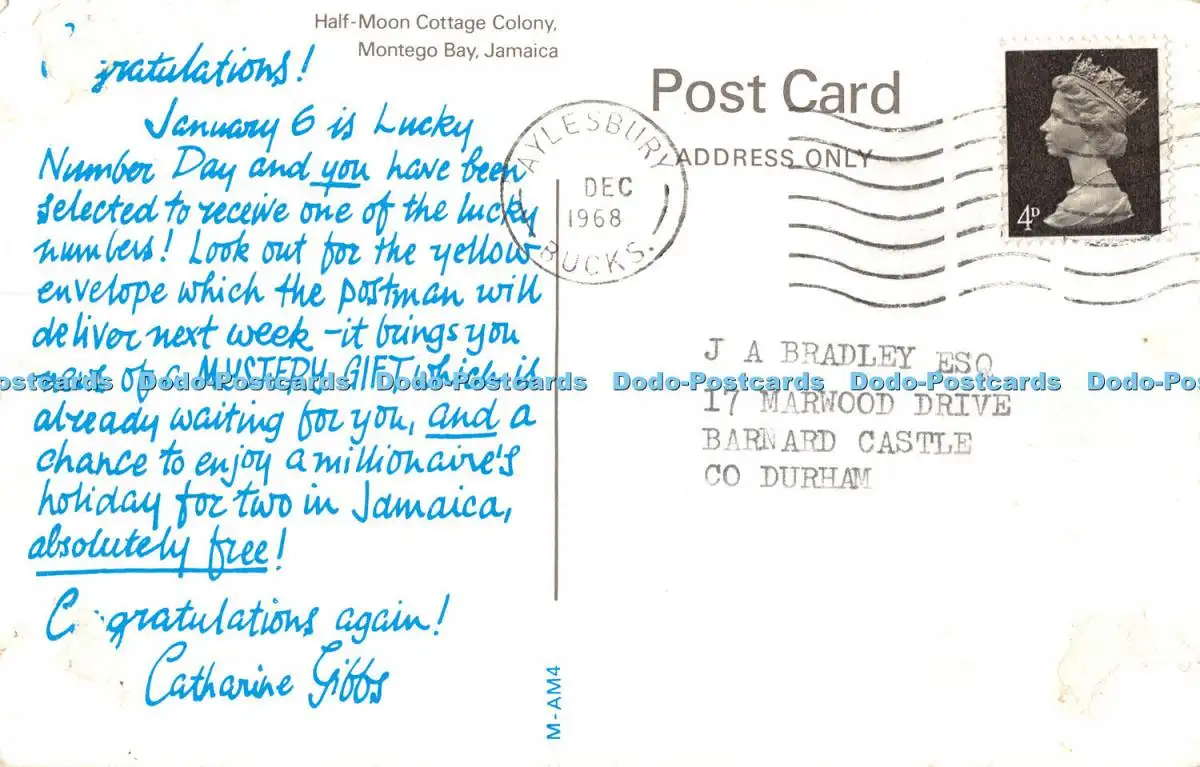 Half-Moon Cottage Colony,
Montego Bay, Jamaica
Congratulations!
January 6 is Lucky
Number Day and you have been
selected to receive one of the lucky
numbers! Look out for the yellow
envelope which the postman will
deliver next week - it brings you
news of a MYSTERY GIFT which is
already waiting for you, and a
chance to enjoy a millionaire's
holiday for two in Jamaica,
absolutely free!
Congratulations again!
Catharine Gibbs
M-AM4
Post Card
ADDRESS ONLY
AYLESBURY
DEC
1968
BUCKS.
4P
J A BRADLEY ESQ
17 MARWOOD DRIVE
BARNARD CASTLE
CO DURHAM
Dodo-Postcards Dodo-Postcards Dodo-Postcards Dodo-Postcards Dodo-Postcards